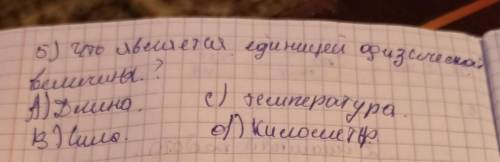 5) Что является единицей физической
величины?
А) Длина. с) температура.
В) Сила. d) Километр.